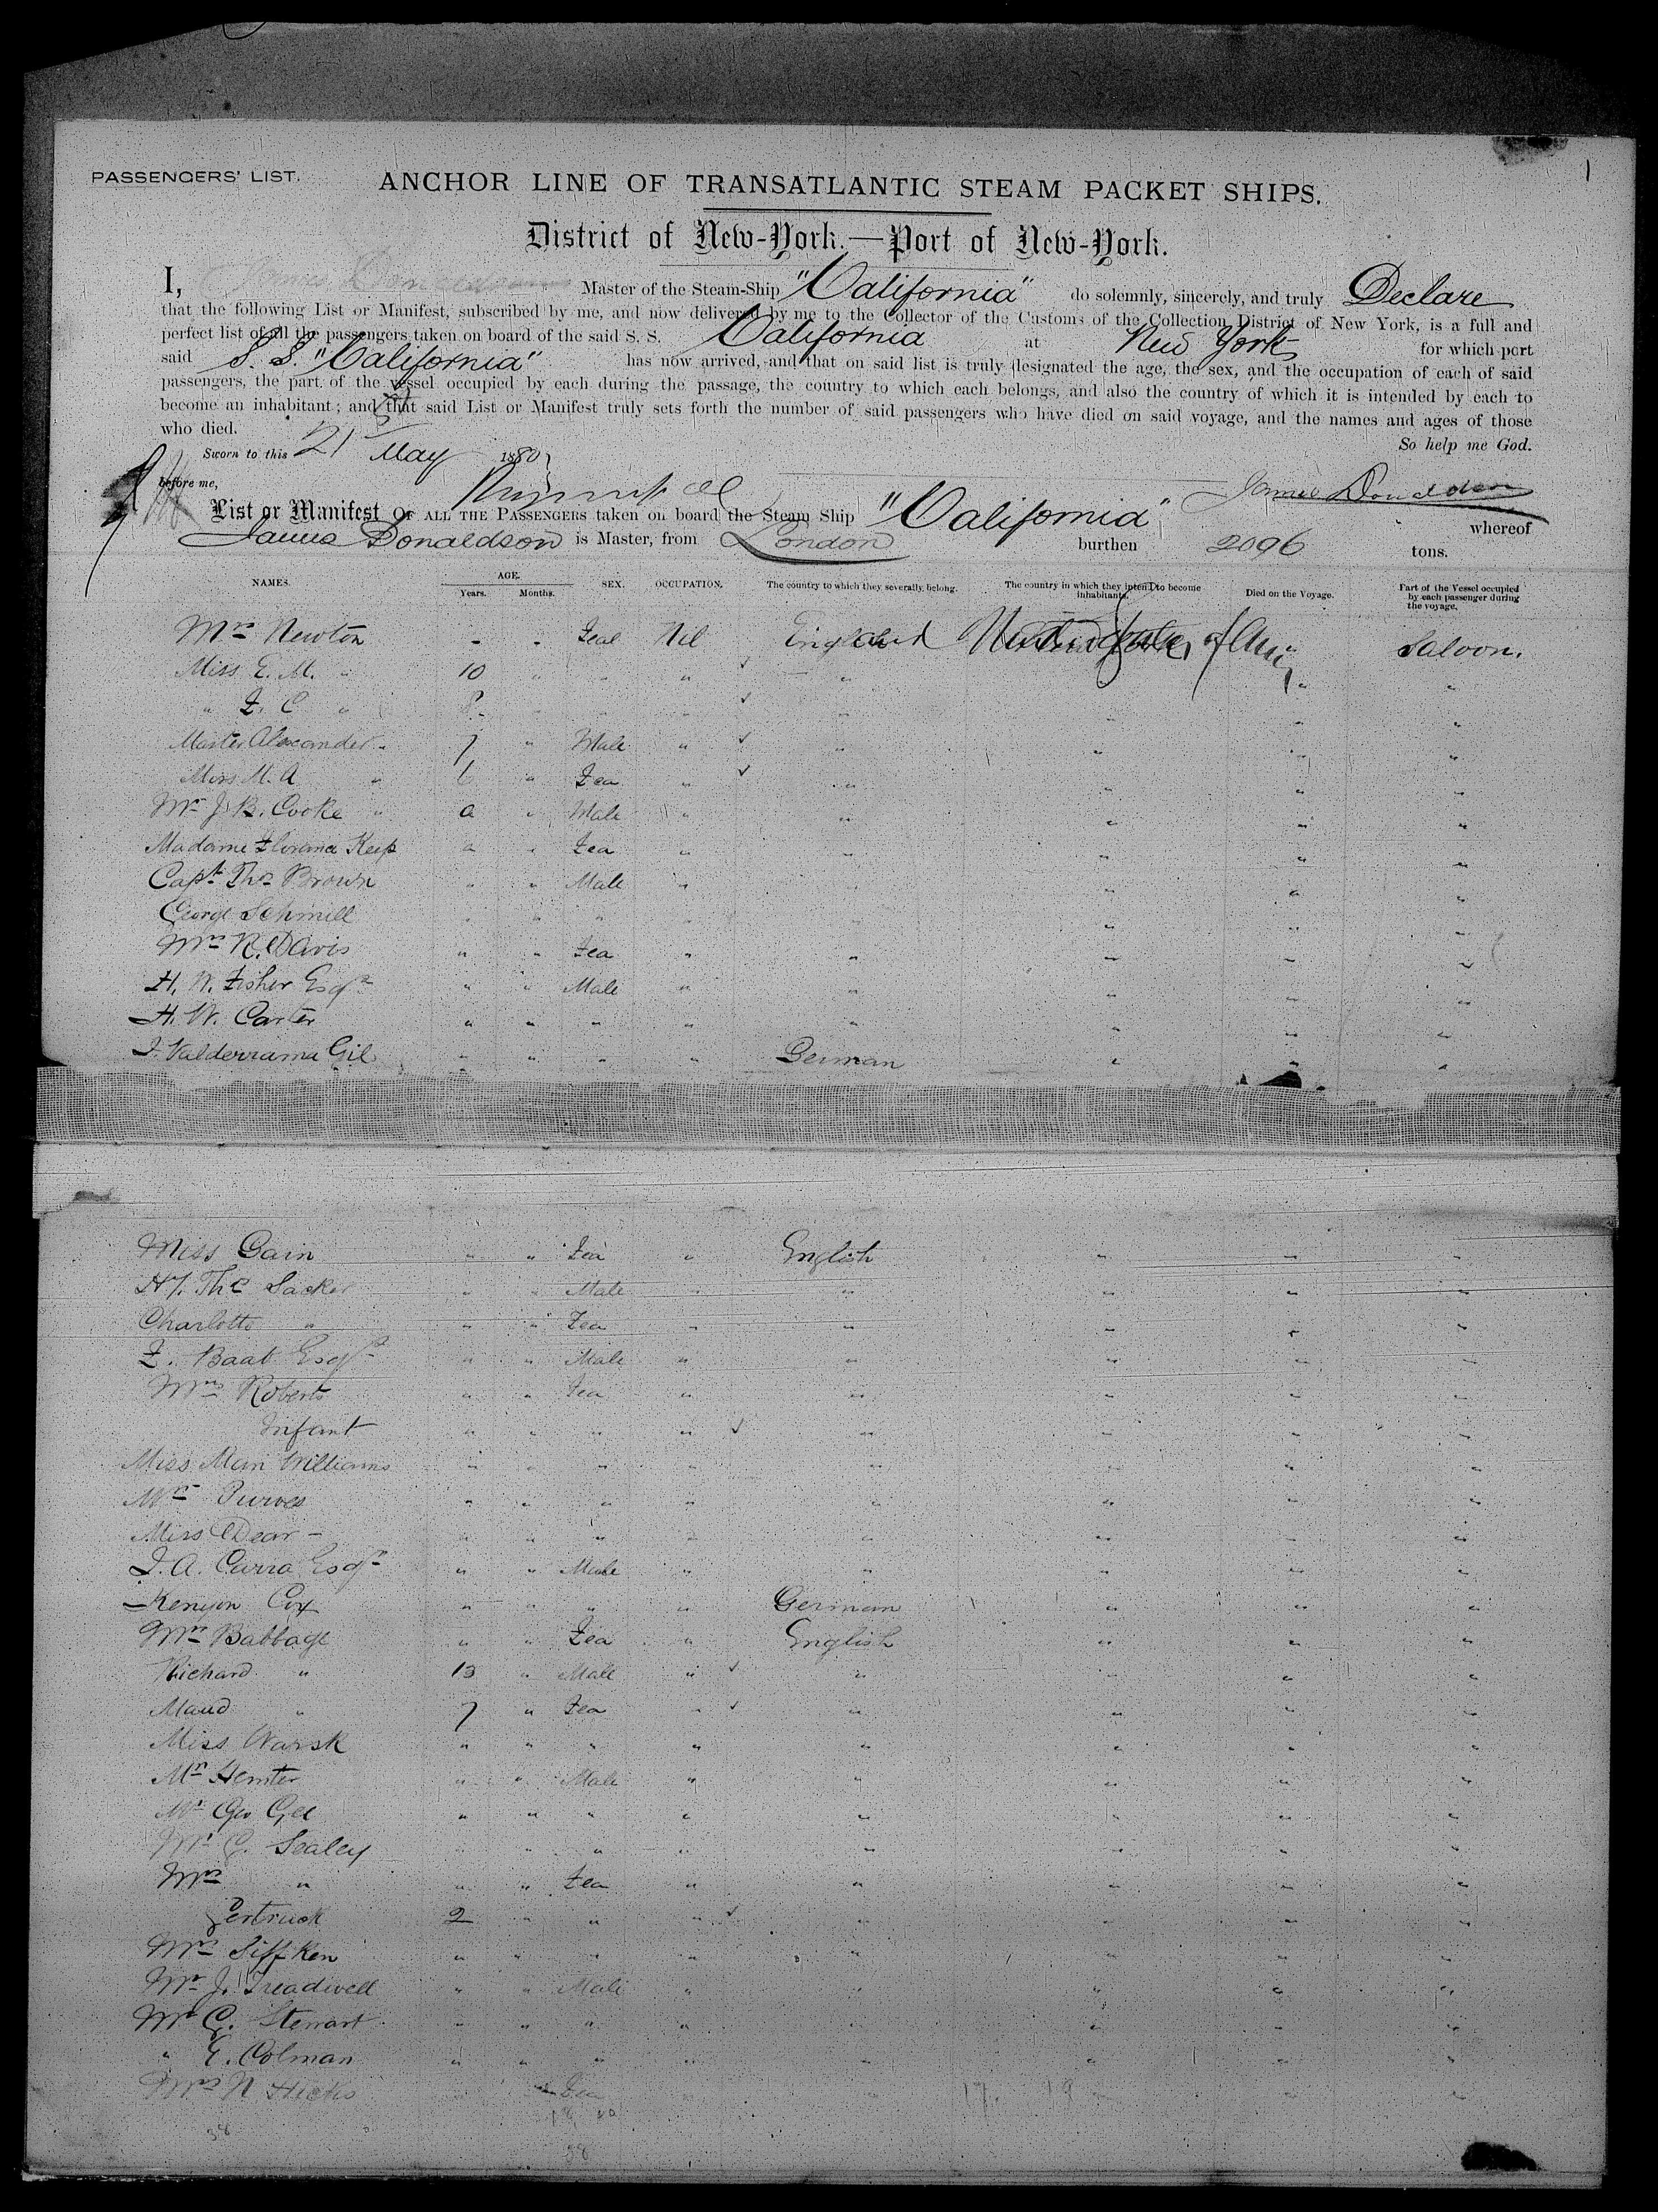 1
PASSENGERS' LIST.
ANCHOR LINE OF TRANSATLANTIC STEAM PACKET SHIPS.
District of New-York.—Port of New-York.
I, James Donaldson Master of the Steam-Ship "California" do solemnly, sincerely, and truly Declare
that the following List or Manifest, subscribed by me, and now delivered by me to the Collector of the Customs of the Collection District of New York, is a full and
perfect list of all the passengers taken on board of the said S. S. California at New York for which port
said S. S. "California" has now arrived, and that on said list is truly designated the age, the sex, and the occupation of each of said
passengers, the part of the vessel occupied by each during the passage, the country to which each belongs, and also the country of which it is intended by each to
become an inhabitant; and that said List or Manifest truly sets forth the number of said passengers who have died on said voyage, and the names and ages of those
who died.
So help me God.
Sworn to this 21 May 1880
before me,
James Donaldson
List or Manifest OF ALL THE PASSENGERS taken on board the Steam Ship "California" whereof
James Donaldson is Master, from London burthen 2096 tons.
NAMES. AGE. Years. Months. SEX. OCCUPATION. The country to which they severally belong. The country in which they intend to become inhabitants. Died on the Voyage. Part of the Vessel occupied by each passenger during the voyage.
Mrs Newton - - Feal Nil England Saloon.
Miss E. M. " 10 " " " " " "
" F. C " 8 " " " " " " "
Master Alexander " 7 " Male " " " " "
Miss M. A " 6 " Fea " " " " "
Mr J. B. Cooke " a " Male " " " " "
Madame Florama Keep a " Fea " " " " "
Capt Thos Brown " " Male " " " "
George Schmill " " " " " " "
Mrs N. Davis " " Fea " " " " "
H. W. Fisher Esqr " " Male " " " " "
H. W. Carter " " " " " " " "
J. Valderrama Gil " " " " German " " "
Miss Gain " " Fea " English " " "
Hy. Thc Sacker " " Male " " " " "
Charlotte " " " Fea " " " " "
F. Baab Esqr " " Male " " " " "
Mrs Roberts " " Fea " " " " "
Infant " " " " " " " "
Miss Williams " " " " " " " "
Purves " " " " " " " "
Miss Dear - " " " " " " "
J. A. Carra Esqr " " Male " " " " "
Kenyon Cox " " " " German " " "
Mrs Babbage " " Fea " English " " "
Richard " 13 " Male " " " " "
Maud " 7 " Fea " " " " "
Miss Warsk " " " " " " " "
Mr Hemter " " Male " " " " "
Mr Geo Gel " " " " " " " "
Mr C. Sealey " " " " " " " "
Mrs " " " Fea " " " " "
Gertrude 2 " " " " " " "
Mrs Siffken " " " " " " " "
Mr J. Treadwell " " Male " " " " "
Mr G. Stewart " " " " " " "
" E. Colman " " " " " " " "
Mrs N Hicks " " Fea " "
17. 19
38
38